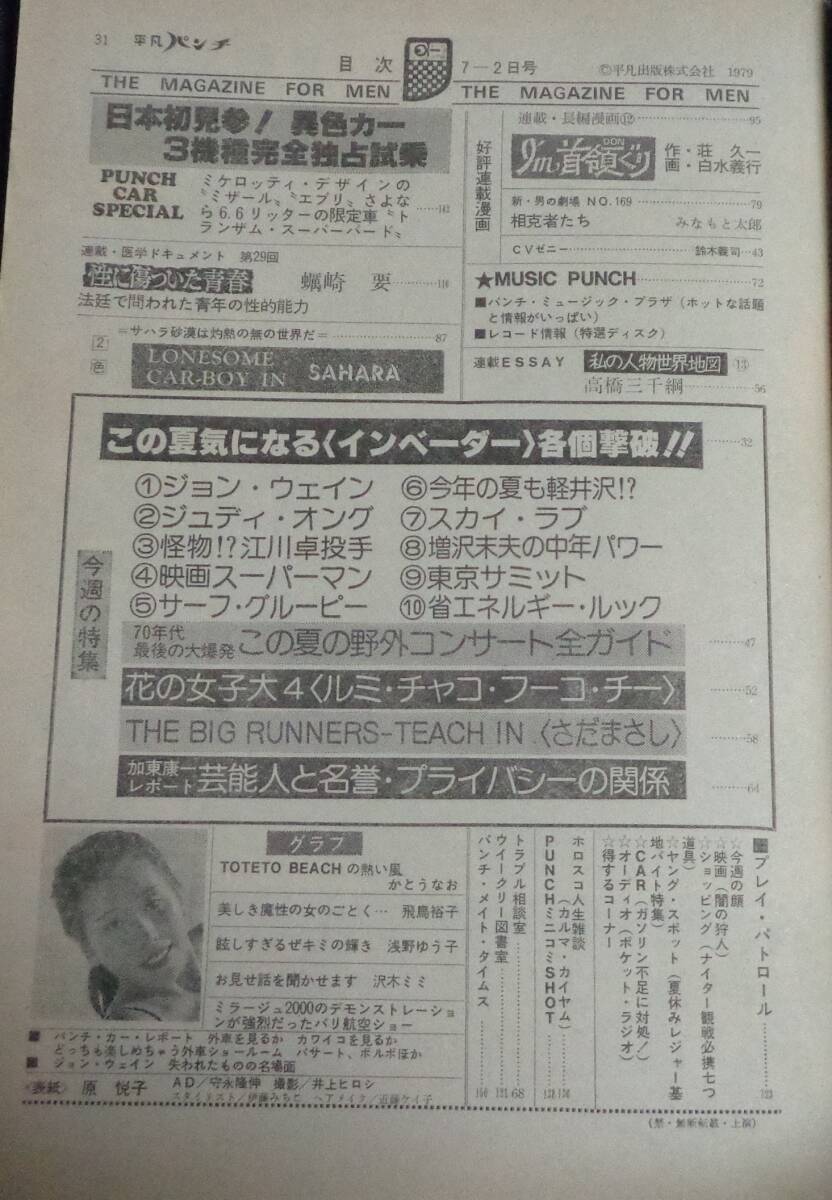 31 平凡パンチ
目次
7―2日号
©平凡出版株式会社 1979
THE MAGAZINE FOR MEN
THE MAGAZINE FOR MEN
日本初見参！異色カー
3機種完全独占試乗
PUNCH
CAR
SPECIAL
ミケロッティ・デザインの
〝ミザール〟〝エプリ〟さよな
ら6.6リッターの限定車〝ト
ランザム・スーパーバード〟
連載・医学ドキュメント 第29回
性に傷ついた青春 蠣崎 要……110
法廷で問われた青年の性的能力
=サハラ砂漠は灼熱の無の世界だ=……87
2色
LONESOME
CAR-BOY IN SAHARA
好評連載漫画
連載・長編漫画⑫……95
I'm首領ぐり
DON
作・荘 久一
画・白水義行
新・男の劇場 NO.169……79
相克者たち みなもと太郎
CVゼニー……鈴木義司…43
★MUSIC PUNCH……72
■パンチ・ミュージック・プラザ（ホットな話題
と情報がいっぱい）
■レコード情報（特選ディスク）
連載ESSAY 私の人物世界地図 ⑬
高橋三千綱……56
今週の特集
この夏気になる〈インベーダー〉各個撃破!!……32
①ジョン・ウェイン
②ジュディ・オング
③怪物!?江川卓投手
④映画スーパーマン
⑤サーフ・グルーピー
⑥今年の夏も軽井沢!?
⑦スカイ・ラブ
⑧増沢末夫の中年パワー
⑨東京サミット
⑩省エネルギー・ルック
70年代
最後の大爆発 この夏の野外コンサート全ガイド……47
花の女子大4〈ルミ・チャコ・フーコ・チー〉……52
THE BIG RUNNERS-TEACH IN〈さだまさし〉……58
加東康一
レポート 芸能人と名誉・プライバシーの関係……64
グラフ
TOTETO BEACHの熱い風
かとうなお
美しき魔性の女のごとく… 飛鳥裕子
眩しすぎるぜキミの輝き 浅野ゆう子
お見せ話を聞かせます 沢木ミミ
ミラージュ2000のデモンストレーショ
ンが強烈だったパリ航空ショー
■パンチ・カー・レポート 外車を見るか カワイコを見るか
どっちも楽しめちゃう外車ショールーム パサート、ボルボほか
■ジョン・ウェイン 失われたものの名場面
〈表紙〉原 悦子
AD／守永隆伸 撮影／井上ヒロシ
スタイリスト／伊藤みちヒ ヘアメイク／近藤ケイ子
プレイ・パトロール……123
☆今週の顔
☆映画（闇の狩人）
☆ショッピング（ナイター観戦必携七つ
道具）
☆ヤング・スポット（夏休みレジャー基
地バイト特集）
☆CAR（ガソリン不足に対処！）
☆オーディオ（ポケット・ラジオ）
☆得するコーナー
ホロスコ人生雑談
（カルマ・カイヤム）……130
PUNCHミニコミSHOT……138
トラブル相談室……68
ウイークリー図書室……121
パンチ・メイト・タイムス……160
（禁・無断転載・上演）